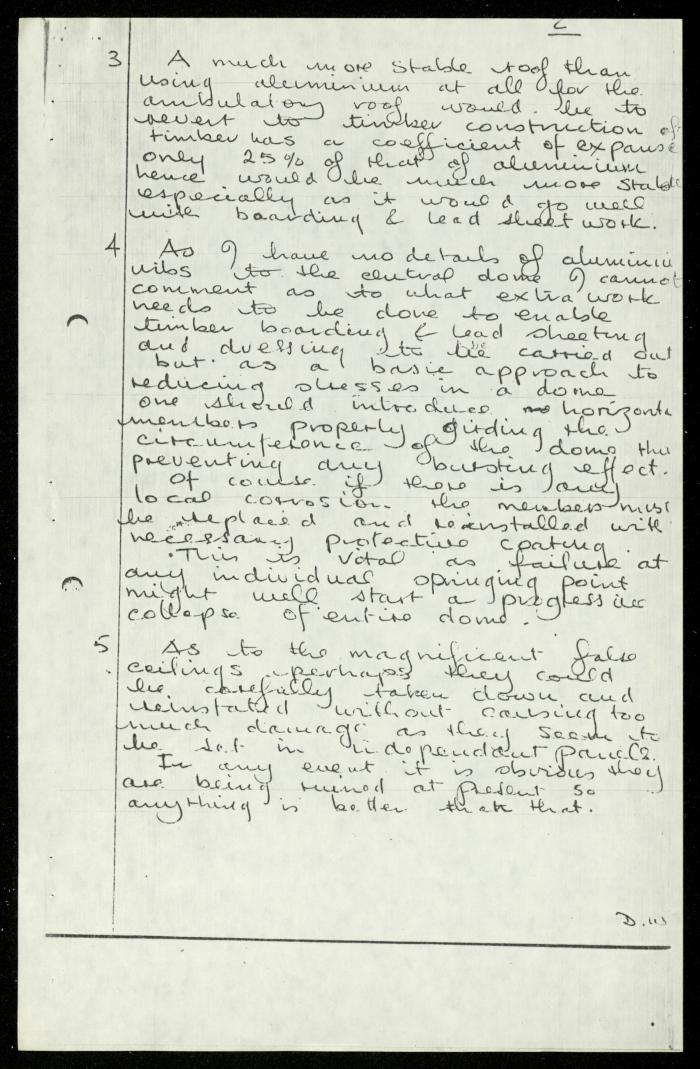 2
3 A much more stable roof than
using aluminium at all for the
ambulatory roof would be to
revert to timber construction of
timber has a coefficient of expansi
only 25% of that of aluminium
hence would be much more stable
especially as it would go well
with boarding & lead sheet work.
4 As I have no details of aluminiu
ribs to the central dome I cannot
comment as to what extra work
needs to be done to enable
timber boarding & lead sheeting
and dressing to be carried out
but as a basic approach to
reducing stresses in a dome
one should introduce horizonta
members properly girding the
circumference of the dome thus
preventing any bursting effect.
Of course if there is any
local corrosion the members must
be replaced and reinstalled with
necessary protective coating.
This is vital as failure at
any individual springing point
might well start a progressive
collapse of entire dome.
5 As to the magnificent false
ceilings perhaps they could
be carefully taken down and
reinstated without causing too
much damage as they seem to
be set in independant panels.
In any event it is obvious they
are being ruined at present so
anything is better than that.